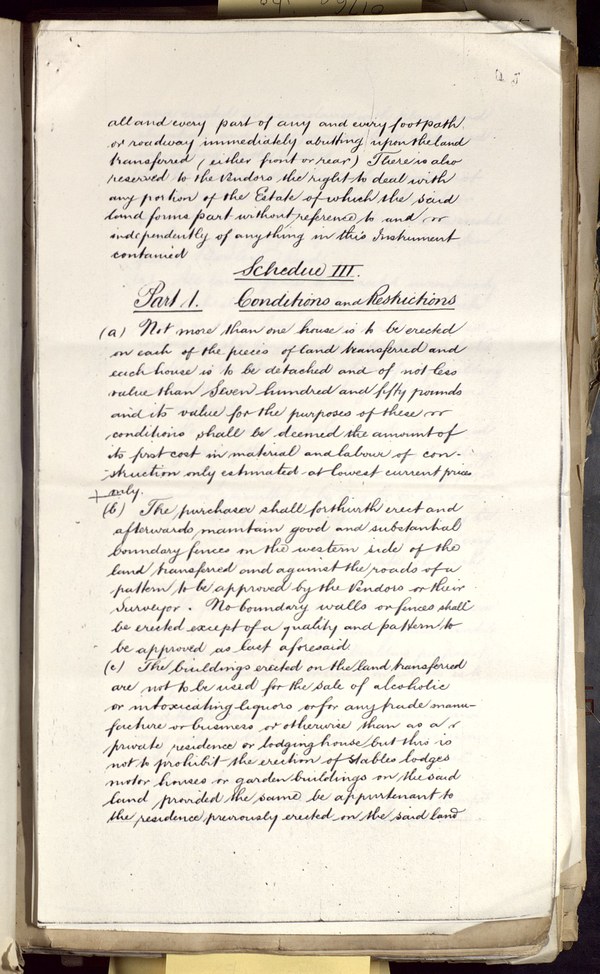 all and every part of any and every footpath
or roadway immediately abutting upon the land
transferred (either front or rear) There is also
reserved to the Vendors the right to deal with
any portion of the Estate of which the said
land forms part without reference to and or
independently of anything in this Instrument
contained
Schedue III.
Part 1. Conditions and Restrictions
(a) Not more than one house is to be erected
on each of the pieces of land transferred and
each house is to be detached and of not less
value than Seven hundred and fifty pounds
and its value for the purposes of these or
conditions shall be deemed the amount of
its first cost in material and labour of con-
struction only estimated at lowest current prices
+ only.
(b) The purchaser shall forthwith erect and
afterwards maintain good and substantial
boundary fences on the western side of the
land transferred and against the roads of a
pattern to be approved by the Vendors or their
Surveyor. No boundary walls or fences shall
be erected except of a quality and pattern to
be approved as last aforesaid
(c) The buildings erected on the land transferred
are not to be used for the sale of alcoholic
or intoxicating liquors or for any trade manu-
facture or business or otherwise than as a
private residence or lodging house but this is
not to prohibit the erection of stables lodges
motor houses or garden buildings on the said
land provided the same be appurtenant to
the residence previously erected on the said land